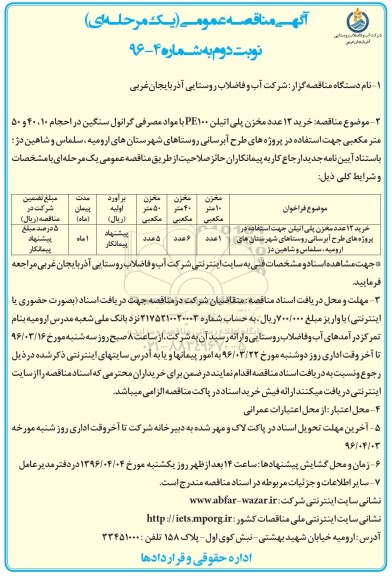 آگهی مناقصه عمومی (یک مرحله‌ای)
نوبت دوم به شماره ۴-۹۶
شرکت آب و فاضلاب روستایی
آذربایجان غربی
۱-نام دستگاه مناقصه گزار : شرکت آب و فاضلاب روستایی آذربایجان غربی
۲-موضوع مناقصه: خرید ۱۲ عدد مخزن پلی اتیلن PE۱۰۰ با مواد مصرفی گرانول سنگین در احجام ۱۰، ۴۰ و ۵۰
متر مکعبی جهت استفاده در پروژه های طرح آبرسانی روستاهای شهرستان های ارومیه ، سلماس و شاهین دژ ؛
باستناد آیین نامه جدید ارجاع کار به پیمانکاران حائز صلاحیت از طریق مناقصه عمومی یک مرحله ای با مشخصات
و شرایط کلی ذیل:
موضوع فراخوان | مخزن ۱۰متر مکعبی | مخزن ۴۰متر مکعبی | مخزن ۵۰متر مکعبی | برآورد اولیه (ریال) | مدت پیمان (ماه) | مبلغ تضمین شرکت در مناقصه (ریال)
خرید ۱۲ عدد مخزن پلی اتیلن جهت استفاده در پروژه های طرح آبرسانی روستاهای شهرستان های ارومیه ، سلماس و شاهین دژ | ۱ عدد | ۶ عدد | ۵ عدد | پیشنهاد پیمانکار | ۱ ماه | ۵ درصد مبلغ پیشنهاد پیمانکار
*جهت مشاهده اسناد و مشخصات فنی به سایت اینترنتی شرکت آب و فاضلاب روستایی آذربایجان غربی مراجعه
فرمایید.
۳- مهلت و محل دریافت اسناد مناقصه : متقاضیان شرکت در مناقصه جهت دریافت اسناد (بصورت حضوری یا
اینترنتی) با واریز مبلغ ۷۰۰/۰۰۰ ریال ، به حساب شماره ۲۱۷۵۲۱۰۰۲۰۰۰۳ نزد بانک ملی شعبه مدرس ارومیه بنام
تمرکز درآمدهای آب و فاضلاب روستایی و ارائه رسید آن به شرکت، از ساعت ۸ صبح روز سه شنبه مورخ ۹۶/۰۳/۱۶
تا آخر وقت اداری روز دوشنبه مورخ ۹۶/۰۳/۲۲ به امور پیمانها و یا به آدرس سایتهای اینترنتی ذکر شده در ذیل
رجوع و نسبت به دریافت اسناد مناقصه اقدام نمایند در ضمن برای خریداران محترمی که اسناد مناقصه را از سایت
اینترنتی دریافت میکنند ارائه فیش خرید اسناد در پاکت مناقصه الزامی میباشد.
۴- محل اعتبار : از محل اعتبارات عمرانی
۵- آخرین مهلت تحویل اسناد در پاکت لاک و مهر شده به دبیرخانه شرکت تا آخر وقت اداری روز شنبه مورخه
۹۶/۰۴/۰۳
۶- زمان و محل گشایش پیشنهادها : ساعت ۱۴ بعد از ظهر روز یکشنبه مورخ ۱۳۹۶/۰۴/۰۴ در دفتر مدیر عامل
۷- سایر اطلاعات و جزئیات مربوطه در اسناد مناقصه مندرج است.
نشانی سایت اینترنتی شرکت : www.abfar-wazar.ir
نشانی سایت اینترنتی ملی مناقصات کشور : http://iets.mporg.ir
آدرس : ارومیه خیابان شهید بهشتی- نبش کوی اول - پلاک ۱۵۸ تلفن : ۳۳۴۵۱۰۰۰
اداره حقوقی و قراردادها